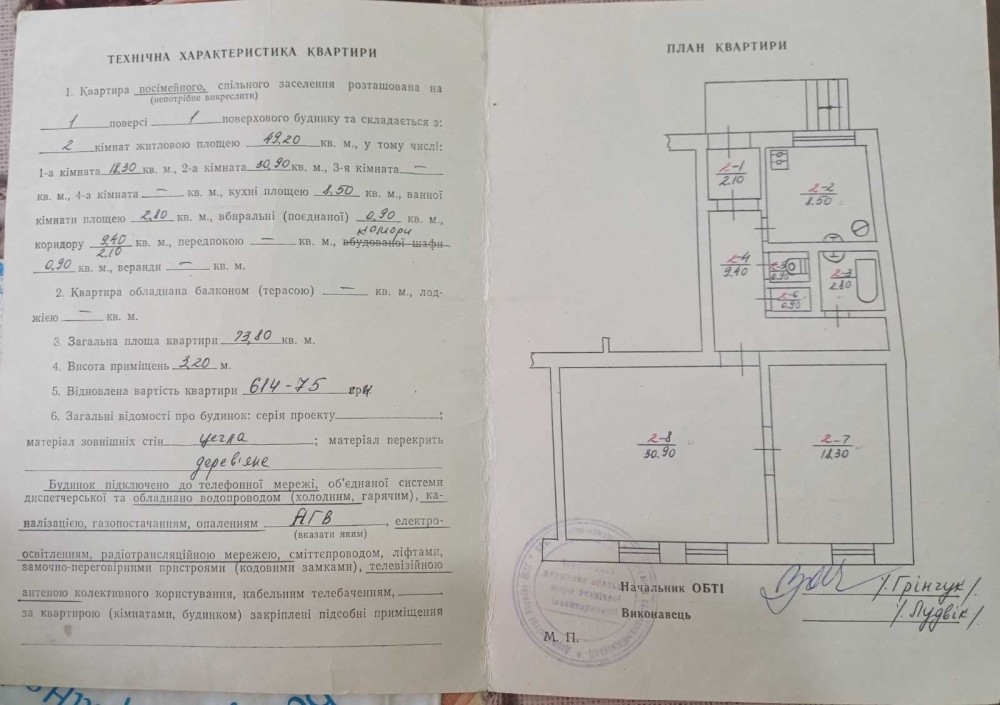 ТЕХНІЧНА ХАРАКТЕРИСТИКА КВАРТИРИ
1. Квартира посімейного, спільного заселення розташована на
(непотрібне викреслити)
1 поверсі 1 поверхового будинку та складається з:
2 кімнат житловою площею 49,20 кв. м., у тому числі:
1-а кімната 18,30 кв. м., 2-а кімната 30,90 кв. м., 3-я кімната —
кв. м., 4-а кімната — кв. м., кухні площею 8,50 кв. м., ванної
кімнати площею 2,80 кв. м., вбиральні (поєднаної) 0,90 кв. м.,
комори
коридору 9,40 кв. м., передпокою — кв. м., вбудованої шафи
2,10
0,90 кв. м., веранди — кв. м.
2. Квартира обладнана балконом (терасою) — кв. м., лод-
жією — кв. м.
3. Загальна площа квартири 73,80 кв. м.
4. Висота приміщень 3,20 м.
5. Відновлена вартість квартири 614-75 грн
6. Загальні відомості про будинок: серія проекту ;
матеріал зовнішніх стін цегла ; матеріал перекрить
дерев'яне
Будинок підключено до телефонної мережі, об'єднаної системи
диспетчерської та обладнано водопроводом (холодним, гарячим), ка-
налізацією, газопостачанням, опаленням АГВ , електро-
(вказати яким)
освітленням, радіотрансляційною мережею, сміттєпроводом, ліфтами,
замочно-переговірними пристроями (кодовими замками), телевізійною
антеною колективного користування, кабельним телебаченням, —
за квартирою (кімнатами, будинком) закріплені підсобні приміщення
ПЛАН КВАРТИРИ
2-1
2.10
2-2
8.50
2-4
9.40
2-5
0.90
2-3
2.80
2-6
0.90
2-8
30.90
2-7
18.30
Начальник ОБТІ /. Грінчук /
Виконавець /. Лудвік /
М. П.